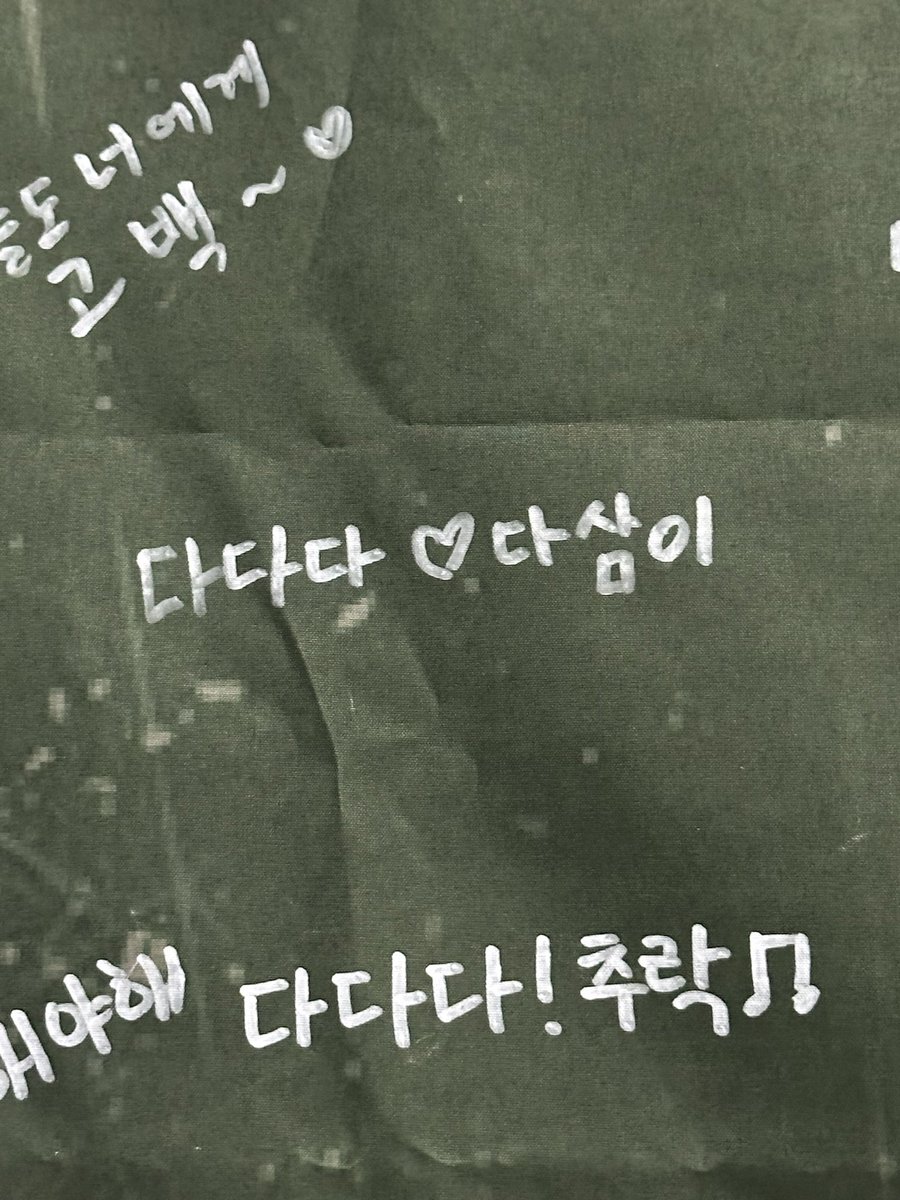 도 너에게
고백~♡
다다다♡다삼이
야해
다다다!추락♫